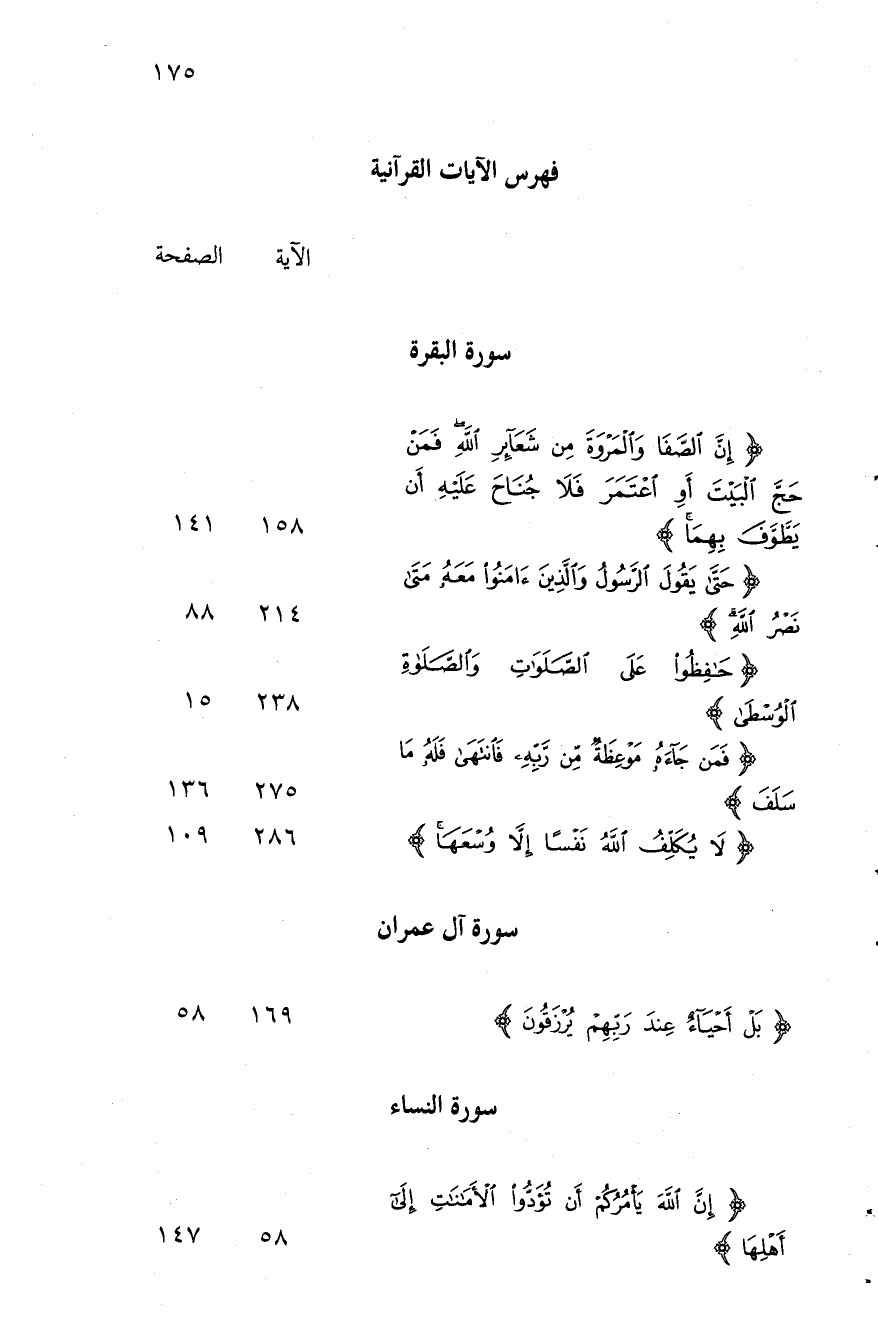 ١٧٥
فهرس الآيات القرآنية
الآية الصفحة
سورة البقرة
﴿ إِنَّ ٱلصَّفَا وَٱلْمَرْوَةَ مِن شَعَآئِرِ ٱللَّهِۖ فَمَنْ
حَجَّ ٱلْبَيْتَ أَوِ ٱعْتَمَرَ فَلَا جُنَاحَ عَلَيْهِ أَن
يَطَّوَّفَ بِهِمَاۚ ﴾ ١٥٨ ١٤١
﴿ حَتَّىٰ يَقُولَ ٱلرَّسُولُ وَٱلَّذِينَ ءَامَنُوا۟ مَعَهُۥ مَتَىٰ
نَصْرُ ٱللَّهِۗ ﴾ ٢١٤ ٨٨
﴿ حَـٰفِظُوا۟ عَلَى ٱلصَّلَوَٰتِ وَٱلصَّلَوٰةِ
ٱلْوُسْطَىٰ ﴾ ٢٣٨ ١٥
﴿ فَمَن جَآءَهُۥ مَوْعِظَةٌ مِّن رَّبِّهِۦ فَٱنتَهَىٰ فَلَهُۥ مَا
سَلَفَ ﴾ ٢٧٥ ١٣٦
﴿ لَا يُكَلِّفُ ٱللَّهُ نَفْسًا إِلَّا وُسْعَهَاۚ ﴾ ٢٨٦ ١٠٩
سورة آل عمران
﴿ بَلْ أَحْيَآءٌ عِندَ رَبِّهِمْ يُرْزَقُونَ ﴾ ١٦٩ ٥٨
سورة النساء
﴿ إِنَّ ٱللَّهَ يَأْمُرُكُمْ أَن تُؤَدُّوا۟ ٱلْأَمَـٰنَـٰتِ إِلَىٰٓ
أَهْلِهَا ﴾ ٥٨ ١٤٧